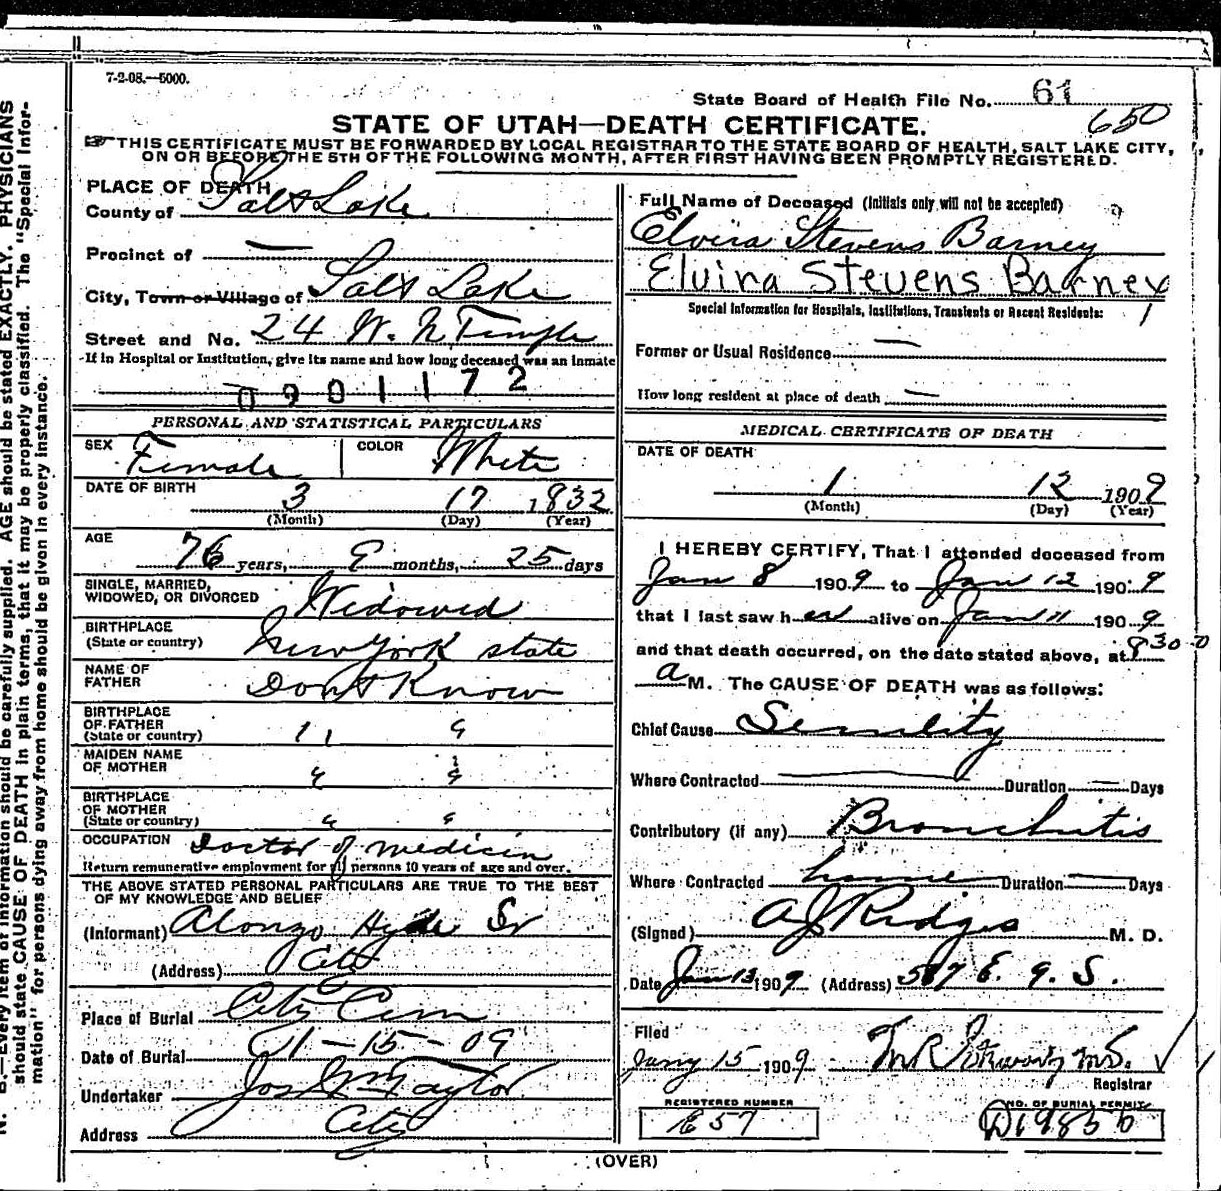 7-2-08.—5000.
State Board of Health File No. 61
650
STATE OF UTAH—DEATH CERTIFICATE.
☞THIS CERTIFICATE MUST BE FORWARDED BY LOCAL REGISTRAR TO THE STATE BOARD OF HEALTH, SALT LAKE CITY,
ON OR BEFORE THE 5TH OF THE FOLLOWING MONTH, AFTER FIRST HAVING BEEN PROMPTLY REGISTERED.
PLACE OF DEATH
County of Salt Lake
Precinct of —
City, Town or Village of Salt Lake
Street and No. 24 W. N Temple
If in Hospital or Institution, give its name and how long deceased was an inmate
0901172
PERSONAL AND STATISTICAL PARTICULARS
SEX Female COLOR White
DATE OF BIRTH 3 17 1832
(Month) (Day) (Year)
AGE 76 years, 9 months, 25 days
SINGLE, MARRIED,
WIDOWED, OR DIVORCED Widowed
BIRTHPLACE
(State or country) New York state
NAME OF
FATHER Dont Know
BIRTHPLACE
OF FATHER
(State or country) " "
MAIDEN NAME
OF MOTHER " "
BIRTHPLACE
OF MOTHER
(State or country) " "
OCCUPATION Doctor of medicin
Return remunerative employment for all persons 10 years of age and over.
THE ABOVE STATED PERSONAL PARTICULARS ARE TRUE TO THE BEST
OF MY KNOWLEDGE AND BELIEF
(Informant) Alonzo Hyde Sr
(Address) City
Place of Burial City Cem
Date of Burial 1-15-09
Undertaker Jos Wm Taylor
Address City
Full Name of Deceased (Initials only will not be accepted)
Elvira Stevens Barney
Elvira Stevens Barney
Special Information for Hospitals, Institutions, Transients or Recent Residents:
Former or Usual Residence —
How long resident at place of death —
MEDICAL CERTIFICATE OF DEATH
DATE OF DEATH
1 12 1909
(Month) (Day) (Year)
I HEREBY CERTIFY, That I attended deceased from
Jan 8 1909 to Jan 12 1909
that I last saw her alive on Jan 11 1909
and that death occurred, on the date stated above, at 830
a M. The CAUSE OF DEATH was as follows:
Chief Cause Senility
Where Contracted — Duration — Days
Contributory (if any) Bronchitis
Where Contracted home Duration — Days
(Signed) A J Ridges M. D.
Date Jan 13 1909 (Address) 567 E. 9. S.
Filed
Jany 15 1909
Registrar
REGISTERED NUMBER
E 57
NO. OF BURIAL PERMIT
D19856
(OVER)
N. B.—Every item of information should be carefully supplied. AGE should be stated EXACTLY. PHYSICIANS
should state CAUSE OF DEATH in plain terms, that it may be properly classified. The "Special Infor-
mation" for persons dying away from home should be given in every instance.